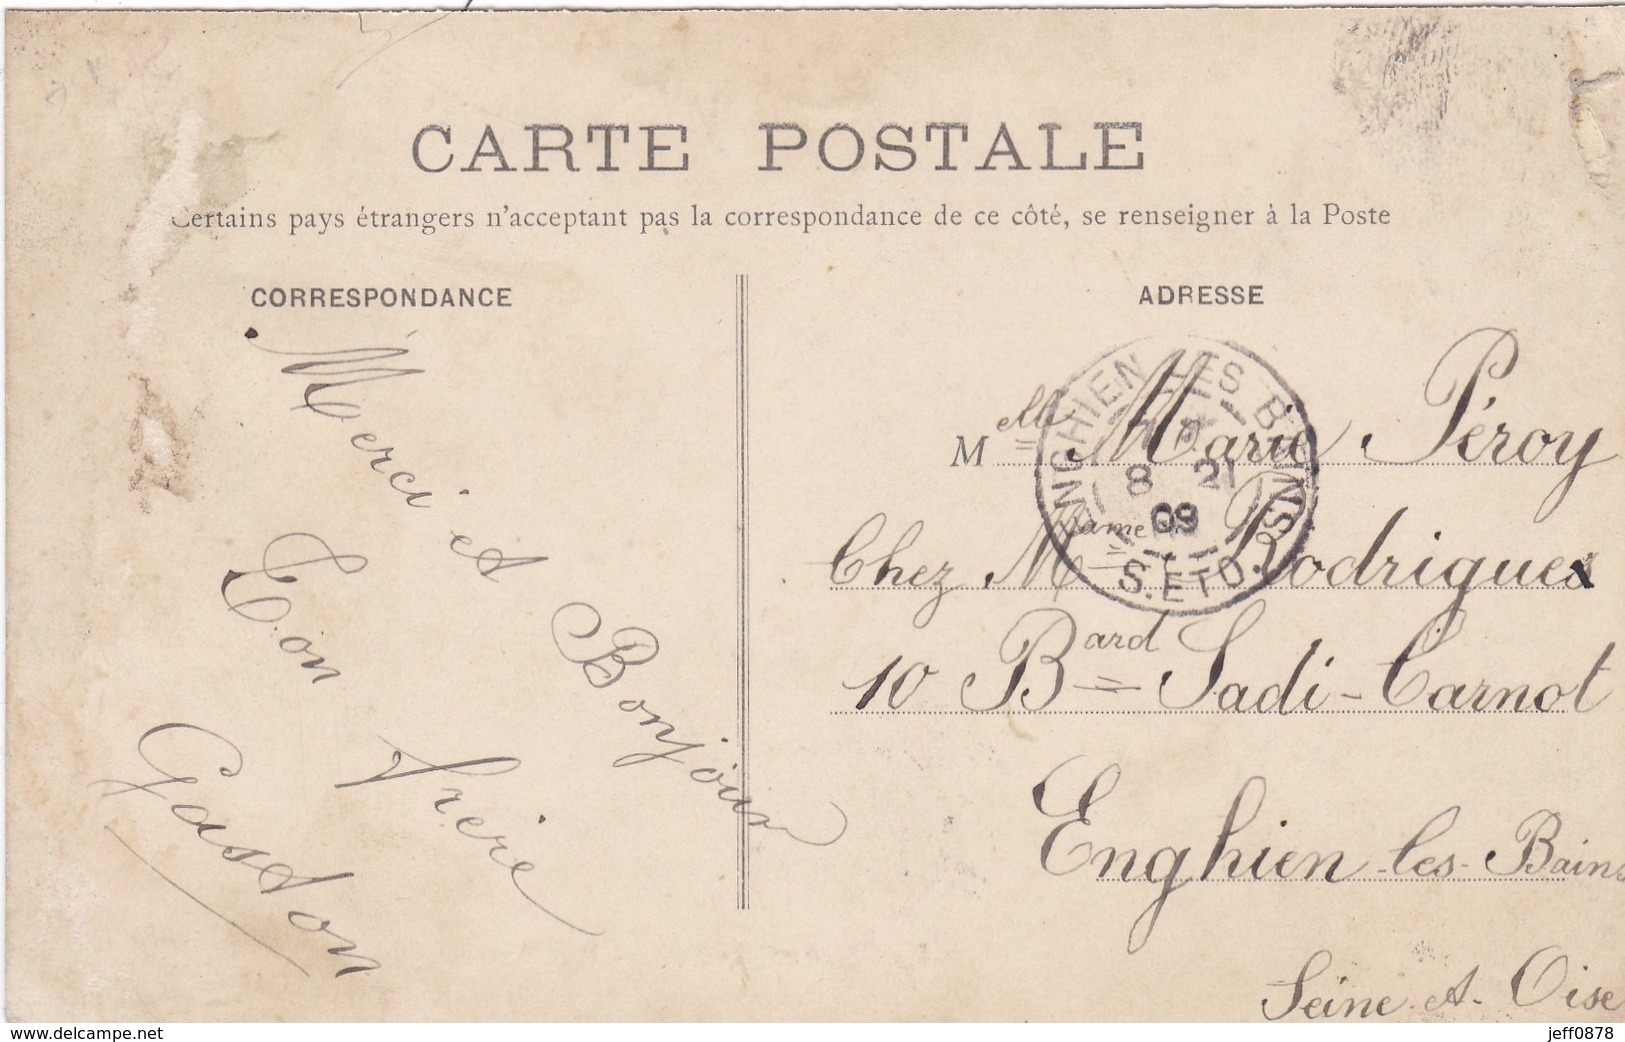 CARTE POSTALE
Certains pays étrangers n'acceptant pas la correspondance de ce côté, se renseigner à la Poste
CORRESPONDANCE
Merci et Bonjour
Ton Frère
Gaston
ADRESSE
Melle Marie Péroy
Chez Mame Rodrigues
10 Bard Sadi-Carnot
Enghien-les-Bains
Seine-et-Oise
ENGHIEN LES BAINS
8 21
09
S. ET O.
www.delcampe.net
jeff0878